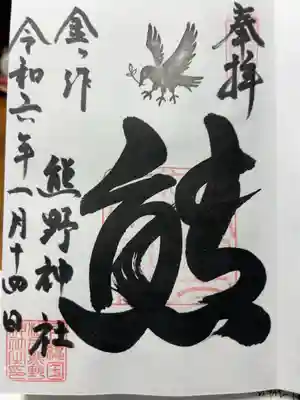 奉拝
熊
熊野神社
金ヶ作
令和六年一月十四日